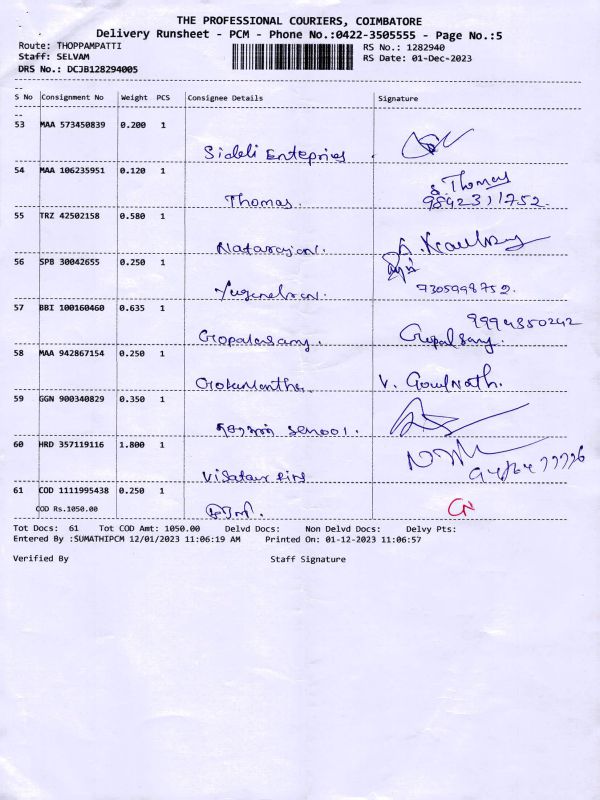 THE PROFESSIONAL COURIERS, COIMBATORE
Delivery Runsheet - PCM - Phone No.:0422-3505555 - Page No.:5
Route: THOPPAMPATTI
RS No.: 1282940
Staff: SELVAM
RS Date: 01-Dec-2023
DRS No.: DCJB128294005
S No Consignment No Weight PCS Consignee Details Signature
53 MAA 573450839 0.200 1
Sideli Entepries
54 MAA 106235951 0.120 1
Thomas. S. Thomas
9842311752.
55 TRZ 42502158 0.580 1
Natarajan.
56 SPB 30042655 0.250 1
9305998752.
57 BBI 100160460 0.635 1
Gopalasamy. Gopalsamy.
9994350242
58 MAA 942867154 0.250 1
V. Gowlnath.
59 GGN 900340829 0.350 1
60 HRD 357119116 1.800 1
61 COD 1111995438 0.250 1
COD Rs.1050.00
Tot Docs: 61 Tot COD Amt: 1050.00 Delvd Docs: Non Delvd Docs: Delvy Pts:
Entered By :SUMATHIPCM 12/01/2023 11:06:19 AM Printed On: 01-12-2023 11:06:57
Verified By Staff Signature